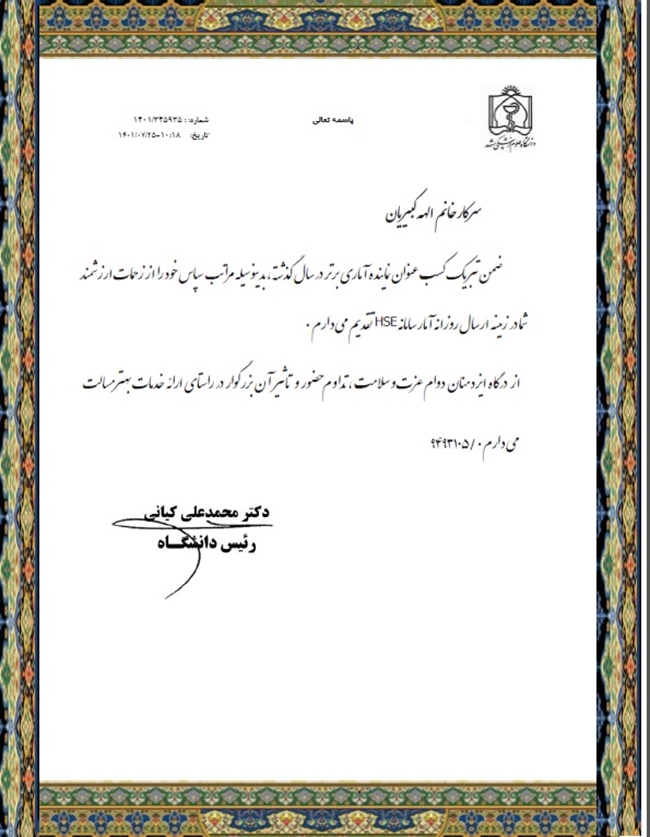 باسمه تعالی
شماره: ۱۴۰۱/۳۴۵۹۳۵
تاریخ: ۱۴۰۱/۰۷/۲۵-۱۰:۱۸
دانشگاه علوم پزشکی مشهد
سرکار خانم الهه کبیریان
ضمن تبریک کسب عنوان نماینده آماری برتر در سال گذشته، بدینوسیله مراتب سپاس خود را از زحمات ارزشمند
شما در زمینه ارسال روزانه آمار سامانه HSE تقدیم می دارم .
از درگاه ایزد منان دوام عزت و سلامت ، تداوم حضور و تاثیر آن بزرگوار در راستای ارائه خدمات بهتر مسالت
می دارم . ۹۴۹۳۱۰۵/۰
دکتر محمدعلی کیانی
رئیس دانشگاه